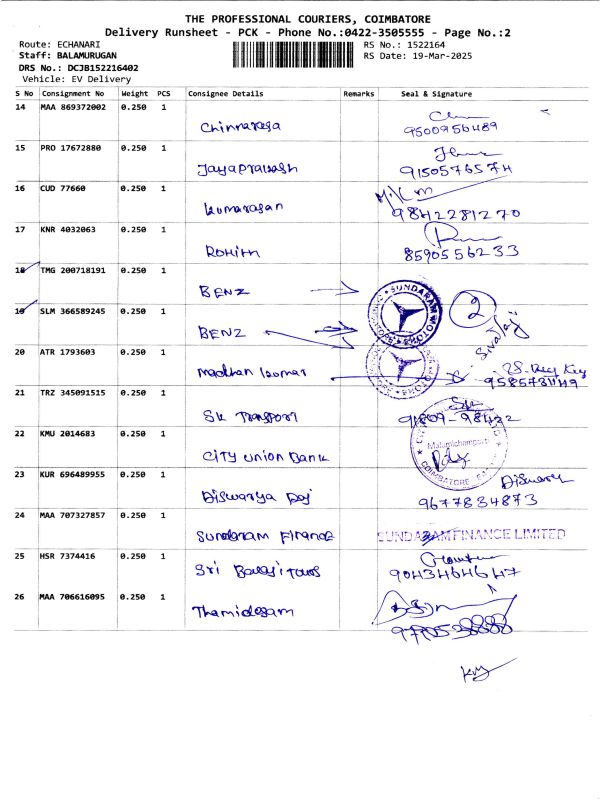 THE PROFESSIONAL COURIERS, COIMBATORE
Delivery Runsheet - PCK - Phone No.:0422-3505555 - Page No.:2
Route: ECHANARI RS No.: 1522164
Staff: BALAMURUGAN RS Date: 19-Mar-2025
DRS No.: DCJB152216402
Vehicle: EV Delivery
S No Consignment No Weight PCS Consignee Details Remarks Seal & Signature
14 MAA 869372002 0.250 1
Chinnaraja 9500956489
15 PRO 17672880 0.250 1
Jayaprakash 9150576574
16 CUD 77660 0.250 1
Kumarasan 9842281270
17 KNR 4032063 0.250 1
Rohith 8590556233
18 TMG 200718191 0.250 1
BENZ
SUNDARAM MOTORS
2
19 SLM 366589245 0.250 1
BENZ
Sivaji
20 ATR 1793603 0.250 1
Madhan Kumar
21 TRZ 345091515 0.250 1
SK Transport 91809-98432
22 KMU 2014683 0.250 1
City Union Bank
COIMBATORE
23 KUR 696489955 0.250 1
Diswarya
9677834873
24 MAA 707327857 0.250 1
Sundaram Finance SUNDARAM FINANCE LIMITED
25 HSR 7374416 0.250 1
Sri Balaji Tours 9043464647
26 MAA 706616095 0.250 1